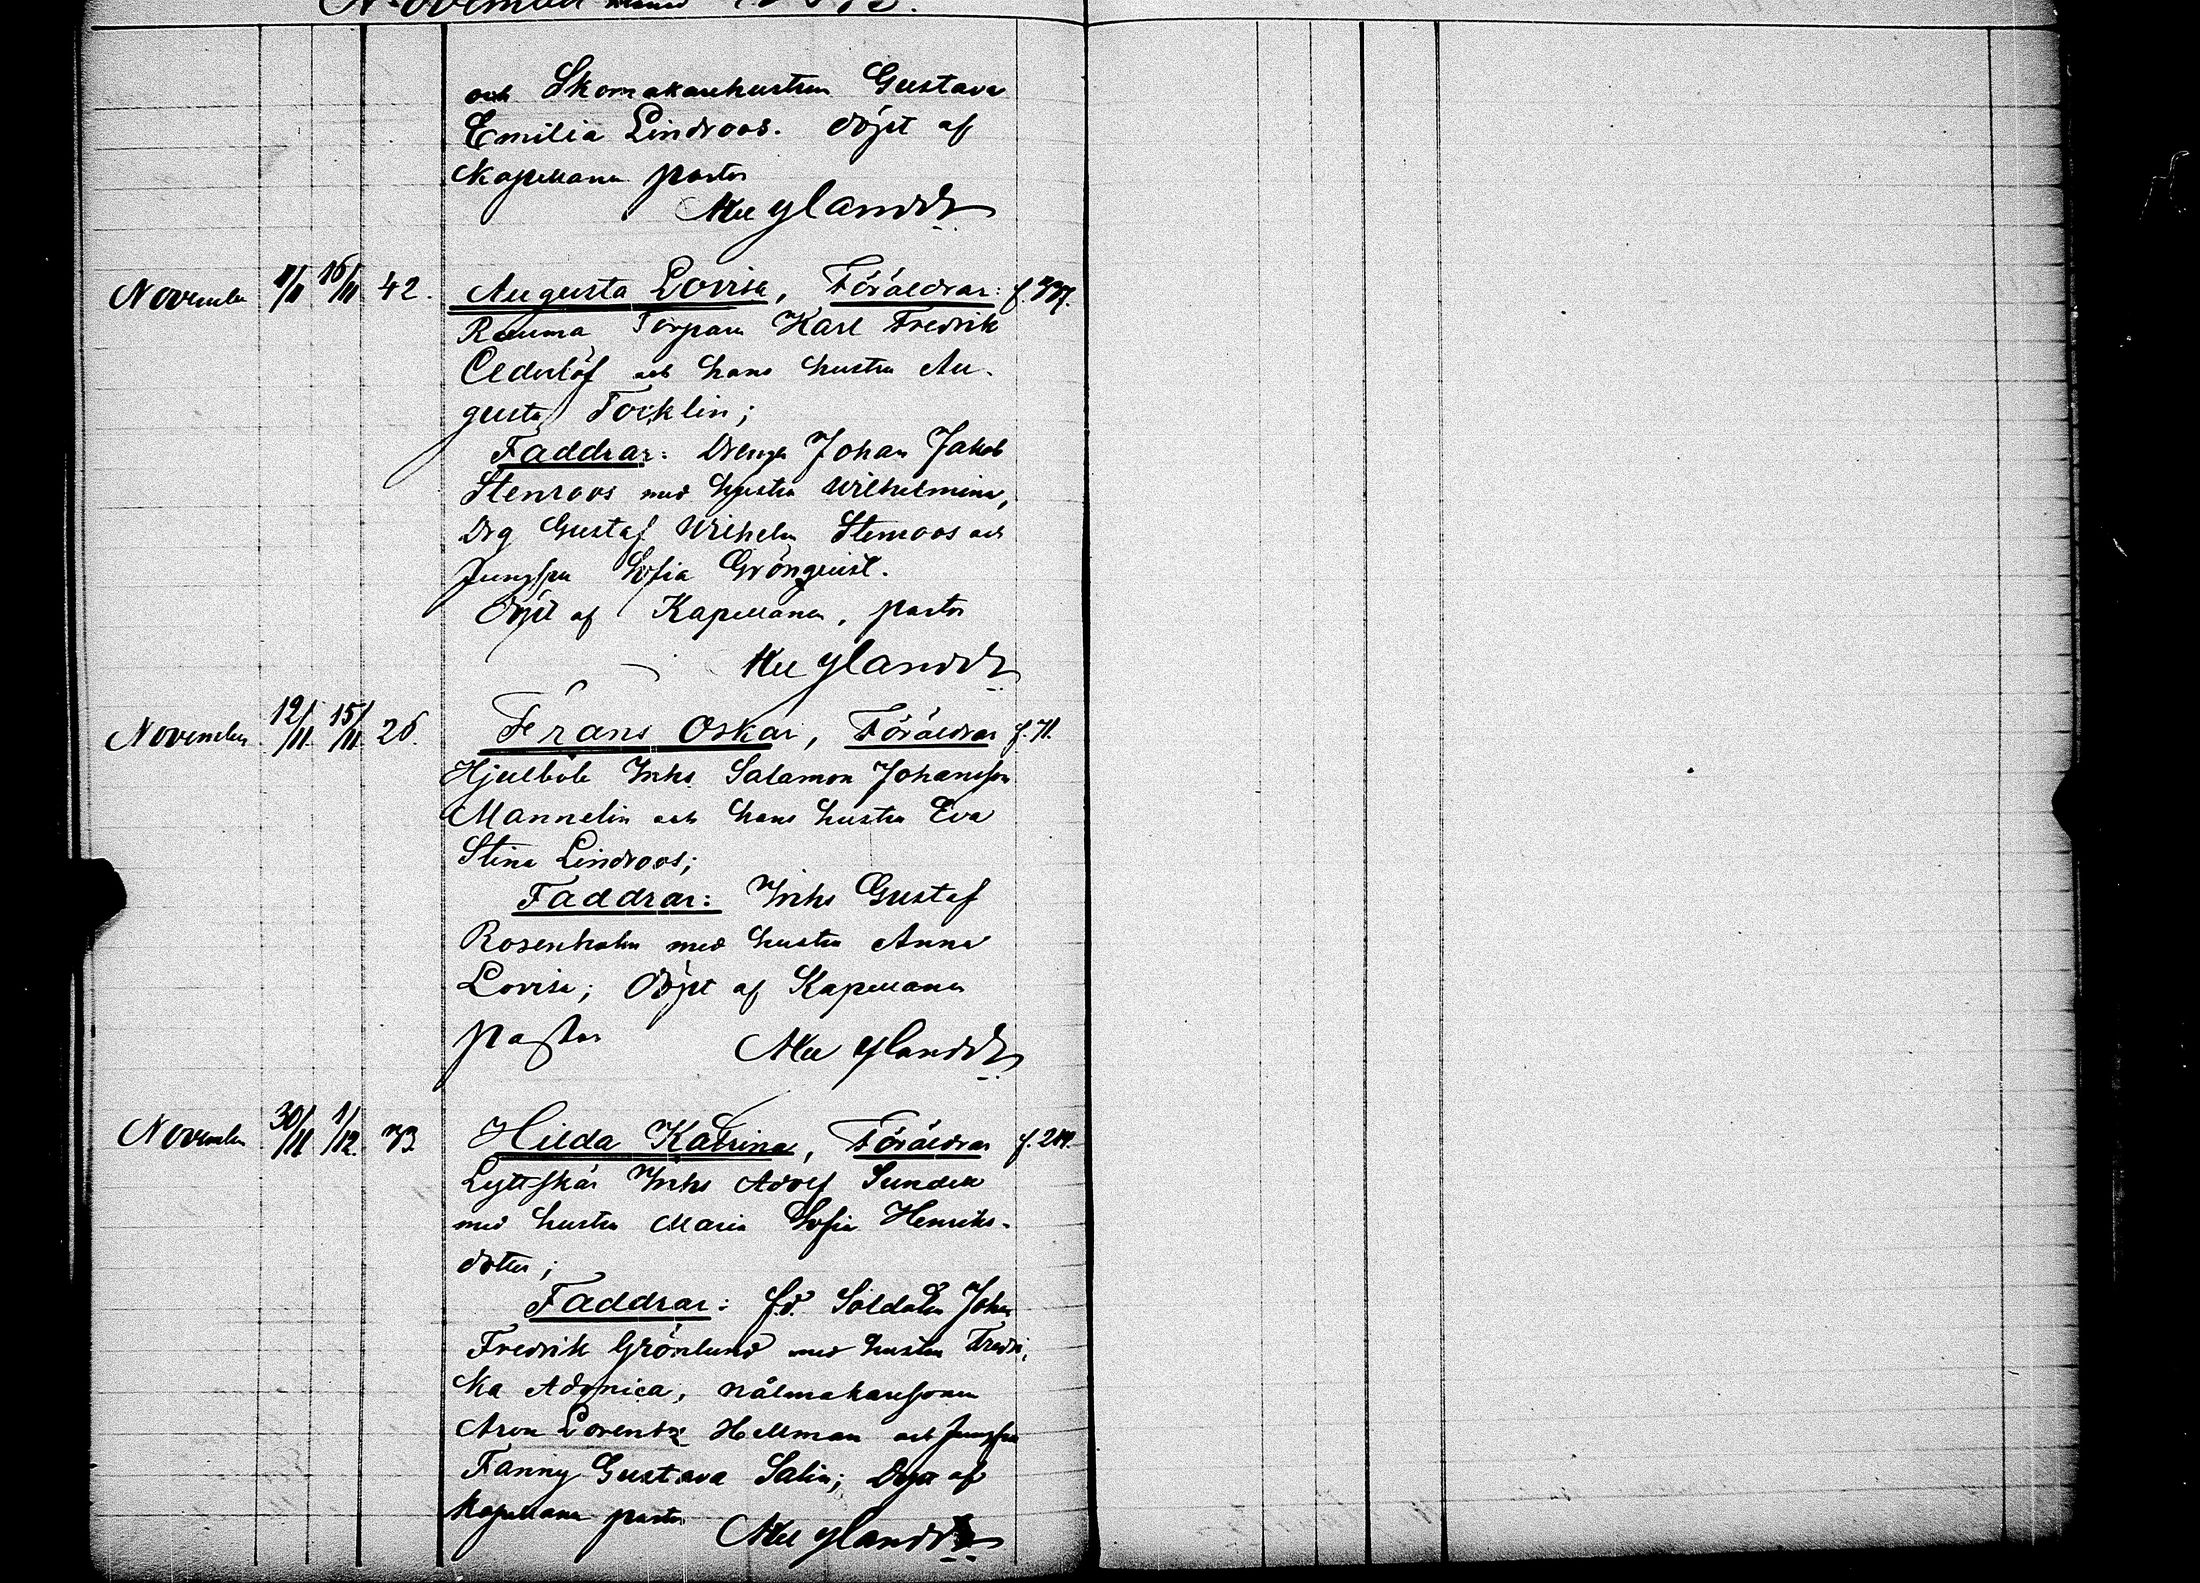 och Skomakarehustrun Gustava
Emilia Lindroos. döpt af
Kapellanen pastor
Nylandr
November 16/11 42. Augusta Lovisa, Föräldrar:
Rauma Torparn Karl Fredrik
Cederlöf och hans hustru Au-
gusta Tocklin;
Faddrar: Drengn Johan Jakob
Stenroos med hustru Wilhelmina,
Drg Gustaf Wilhelm Stenroos och
Jungfru Sofia Grönquist.
Döpt af Kapellanen, pastor
Nylandr
November 12/11. 15/11. 26. Frans Oskar, Föräldrar f. 71.
Hjulböle Inhs Salamon Johansson
Mannelin och hans hustru Eva
Stina Lindroos;
Faddrar: Inhs Gustaf
Rosenholm med hustru Anna
Lovisa; Döpt af Kapellanen
pastor Nylandr
November 30/11. 1/12. 73 Hilda Katrina, Föräldrar
Lyttskär Inhs Adolf Sundell
med hustru Maria Sofia Henriks-
dotter;
Faddrar: f.d. Soldaten Johan
Fredrik Grönlund med hustru Fredri-
ka Adonica, nålmakaresonen
Aron Lorentz Hellman och Jungfru
Fanny Gustava Salin; Döpt af
Kapellanen pastor Nylandr